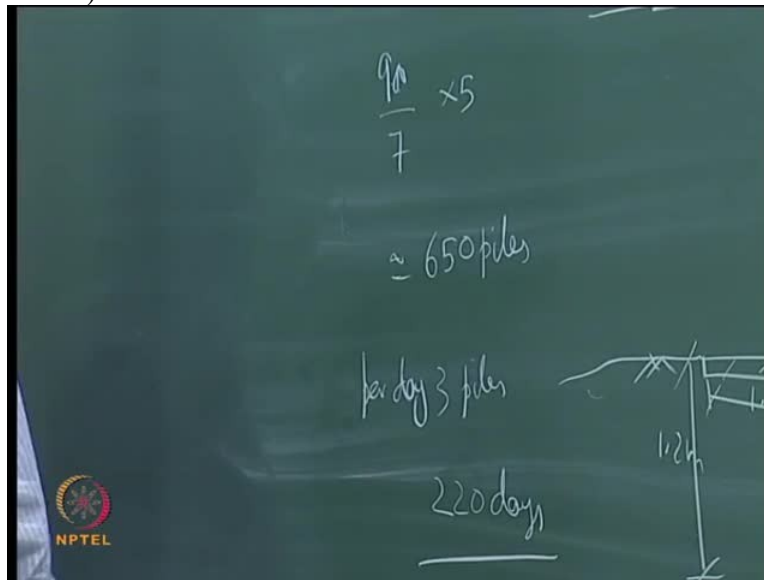 900
7
×5
≃ 650 piles
per day 3 piles
1.2m
220 days
NPTEL